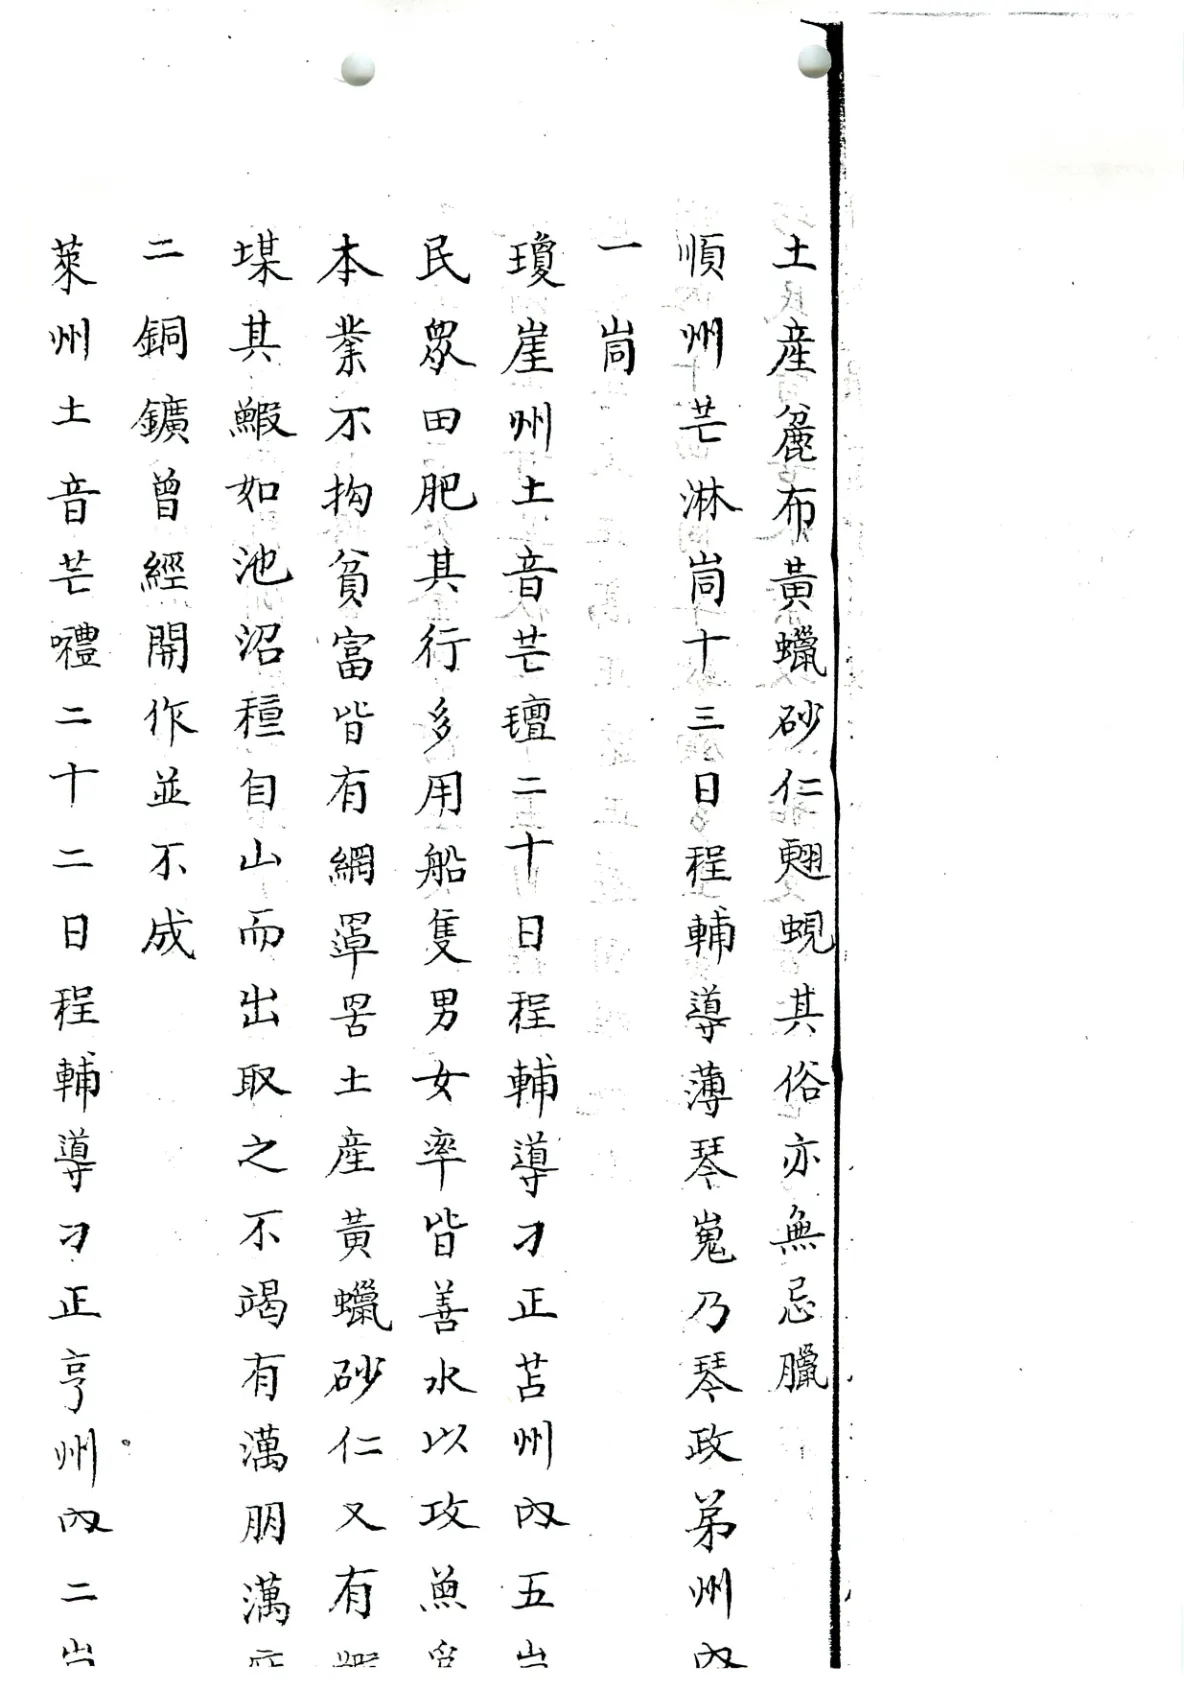 土産麄布黃蠟砂仁翹蜆其俗亦無忌臘
順州芒淋峝十三日程輔導薄琴嵬乃琴政弟州内
一峝
瓊崖州土音芒璮二十日程輔導刁正苫州内五
民眾田肥其行多用船隻男女率皆善水以攻魚
本業不拘貧富皆有網罩罟土産黃蠟砂仁又有
堞其鰕如池沼種自山而出取之不竭有澫朋澫
二銅鑛曾經開作並不成
萊州土音芒㘑二十二日程輔導刁正亨州内二